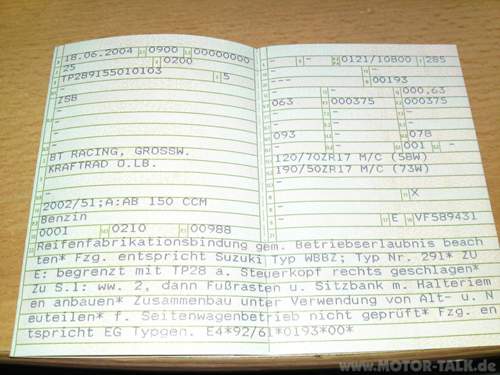 18.06.2004 0900 00000000
25 0200
TP289155010103 5
-
ZSB
-
-
-
BT RACING, GROSSW.
KRAFTRAD O.LB.
-
-
2002/51;A:AB 150 CCM
Benzin
0001 0210 00988
- - 0121/10800 285
- - 00193
- - 000,63
063 000375 000375
- - -
093 - 078
- - 001 -
120/70ZR17 M/C (58W)
190/50ZR17 M/C (73W)
-
- X
-
- E VF589431
Reifenfabrikationsbindung gem. Betriebserlaubnis beach
ten* Fzg. entspricht Suzuki Typ WBBZ; Typ Nr. 291* ZU
E: begrenzt mit TP28 a. Steuerkopf rechts geschlagen*
Zu S.1: ww. 2, dann Fußrasten u. Sitzbank m. Halteriem
en anbauen* Zusammenbau unter Verwendung von Alt- u. N
euteilen* f. Seitenwagenbetrieb nicht geprüft* Fzg. en
tspricht EG Typgen. E4*92/61*0193*00*
www.MOTOR-TALK.de